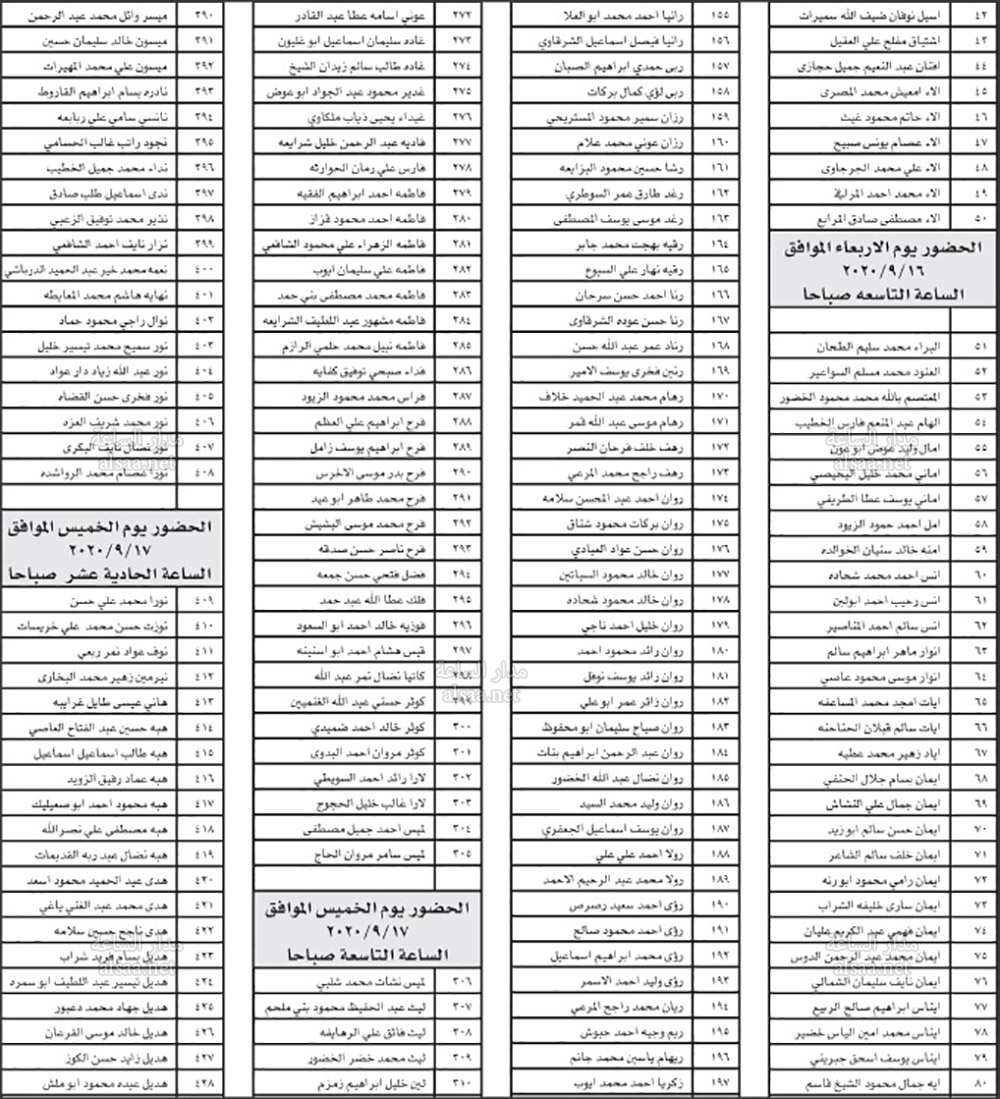 ٤٢ اسيل نوفان ضيف الله سميرات
٤٣ اشتياق مفلح علي العقيل
٤٤ افنان عبد النعيم جميل حجازى
٤٥ الاء امعيش محمد المصرى
٤٦ الاء حاتم محمود غيث
٤٧ الاء عصام يونس صبيح
٤٨ الاء علي محمد الجرجاوى
٤٩ الاء محمد احمد المرافي
٥٠ الاء مصطفى صادق المرابع
الحضور يوم الاربعاء الموافق
٢٠٢٠/٩/١٦
الساعة التاسعه صباحا
٥١ البراء محمد سليم الطحان
٥٢ العنود محمد مسلم السواعير
٥٣ المعتصم بالله محمد محمود الخضور
٥٤ الهام عبد المنعم فارس الخطيب
٥٥ امال وليد عوض ابو عون
٥٦ اماني محمد خليل البحيصي
٥٧ اماني يوسف عطا الطريفي
٥٨ امل احمد حمود الزيود
٥٩ امنه خالد سنيان الخوالده
٦٠ انس احمد محمد شحاده
٦١ انس رحيب احمد ابولبن
٦٢ انس سالم احمد المناصير
٦٣ انوار ماهر ابراهيم سالم
٦٤ انوار موسى محمود عاصي
٦٥ ايات امجد محمد المساعفه
٦٦ ايات سالم قبلان الحناحنه
٦٧ اياد زهير محمد عطيه
٦٨ ايمان بسام جلال الحنفي
٦٩ ايمان جمال علي النشاش
٧٠ ايمان حسن سالم ابوزيد
٧١ ايمان خلف سالم الشاعر
٧٢ ايمان رامي محمود ابورنه
٧٣ ايمان سارى خليفه الشراب
٧٤ ايمان فهمي عبد الكريم عليان
٧٥ ايمان محمد عبد الرحمن الدوس
٧٦ ايمان نايف سليمان الشمالي
٧٧ ايناس ابراهيم صالح الربيع
٧٨ ايناس محمد امين الياس خضير
٧٩ ايناس يوسف اسحق جبريني
٨٠ ايه جمال محمود الشيخ قاسم
١٥٥ رانيا احمد محمد ابو العلا
١٥٦ رانيا فيصل اسماعيل الشرقاوي
١٥٧ ربى حمدي ابراهيم الصبان
١٥٨ ربى لؤي كمال بركات
١٥٩ رزان سمير محمود المستريحي
١٦٠ رزان عوني محمد علام
١٦١ رشا حسين محمود البزايعه
١٦٢ رغد طارق عمر السوطري
١٦٣ رغد موسى يوسف المصطفى
١٦٤ رقيه بهجت محمد جابر
١٦٥ رقيه نهار علي السبوع
١٦٦ رنا احمد حسن سرحان
١٦٧ رنا حسن عوده الشرقاوى
١٦٨ رناد عمر عبد الله حسن
١٦٩ رنين فخرى يوسف الامير
١٧٠ رهام محمد عبد الحميد خلاف
١٧١ رهام موسى عبد الله قمر
١٧٢ رهف خلف فرحان النصر
١٧٣ رهف راجح محمد المرعي
١٧٤ روان احمد عبد المحسن سلامه
١٧٥ روان بركات محمود شناق
١٧٦ روان حسن عواد العبادي
١٧٧ روان خالد محمود السباتين
١٧٨ روان خالد محمود شحاده
١٧٩ روان خليل احمد ناجي
١٨٠ روان رائد محمود احمد
١٨١ روان رائد يوسف نوفل
١٨٢ روان زائر عمر ابو علي
١٨٣ روان صياح سليمان ابو محفوظ
١٨٤ روان عبد الرحمن ابراهيم بنات
١٨٥ روان نضال عبد الله الخضور
١٨٦ روان وليد محمد السيد
١٨٧ روان يوسف اسماعيل الجعفري
١٨٨ رولا احمد علي علي
١٨٩ رولا محمد عبد الرحيم الاحمد
١٩٠ رؤى احمد سعيد رصرص
١٩١ رؤى احمد محمود صالح
١٩٢ رؤى محمد ابراهيم اسماعيل
١٩٣ رؤى وليد احمد الاسمر
١٩٤ ريان محمد راجح المرعي
١٩٥ ريم وجيه احمد حبوش
١٩٦ ريهام ياسين محمد جانم
١٩٧ زكريا احمد محمد ايوب
٢٧٢ عوني اسامه عطا عبد القادر
٢٧٣ غاده سليمان اسماعيل ابو غليون
٢٧٤ غاده طالب سالم زيدان الشيخ
٢٧٥ غدير محمود عبد الجواد ابو عوض
٢٧٦ غيداء يحيى ذياب ملكاوي
٢٧٧ فاديه عبد الرحمن خليل شرايعه
٢٧٨ فارس علي رمان الحوارثه
٢٧٩ فاطمه احمد ابراهيم الفقيه
٢٨٠ فاطمه احمد محمود قزاز
٢٨١ فاطمه الزهراء علي محمود الشافعي
٢٨٢ فاطمه علي سليمان ايوب
٢٨٣ فاطمه محمد مصطفى بني حمد
٢٨٤ فاطمه مشهور عبد اللطيف الشرايعه
٢٨٥ فاطمه نبيل محمد حلمي الرازم
٢٨٦ فداء صبحي توفيق كفايه
٢٨٧ فراس محمد محمود الزيود
٢٨٨ فرح ابراهيم علي العظم
٢٨٩ فرح ابراهيم يوسف زامل
٢٩٠ فرح بدر موسى الاخرس
٢٩١ فرح محمد طاهر ابو عيد
٢٩٢ فرح محمد موسى البشيش
٢٩٣ فرح ناصر حسن صدقه
٢٩٤ فضل فتحي حسن جمعه
٢٩٥ فلك عطا الله عبد حمد
٢٩٦ فوزيه خالد احمد ابو السعود
٢٩٧ قيس هشام احمد ابو اسنينه
٢٩٨ كاتيا نضال نمر عبد الله
٢٩٩ كوثر حسني عبد الله الغنميين
٣٠٠ كوثر خالد احمد ضميدي
٣٠١ كوثر مروان احمد البدوى
٣٠٢ لارا رائد احمد السويطي
٣٠٣ لارا غالب خليل الحجوج
٣٠٤ لميس احمد جميل مصطفى
٣٠٥ لميس سامر مروان الحاج
الحضور يوم الخميس الموافق
٢٠٢٠/٩/١٧
الساعة التاسعة صباحا
٣٠٦ لميس نشات محمد شلبي
٣٠٧ ليث عبد الحفيظ محمود بني ملحم
٣٠٨ ليث فائق علي الرهايفه
٣٠٩ ليث محمد خضر الخضور
٣١٠ لين خليل ابراهيم زمزم
٣٩٠ ميسر وائل محمد عبد الرحمن
٣٩١ ميسون خالد سليمان حسين
٣٩٢ ميسون علي محمد المهيرات
٣٩٣ نادره بسام ابراهيم القاروط
٣٩٤ نانسي سامي علي ربابعه
٣٩٥ نجود راتب غالب الحسامي
٣٩٦ نداء محمد جميل الخطيب
٣٩٧ ندى اسماعيل طلب صادق
٣٩٨ نذير محمد توفيق الزعبي
٣٩٩ نزار نايف احمد الشافعي
٤٠٠ نعمه محمد خير عبد الحميد الدرباشي
٤٠١ نهايه هاشم محمد المعايطه
٤٠٢ نوال راجي محمود حماد
٤٠٣ نور سميح محمد تيسير خليل
٤٠٤ نور عبد الله زياد دار عواد
٤٠٥ نور فخرى حسن القضاه
٤٠٦ نور محمد شريف العزه
٤٠٧ نور نضال نايف البكرى
٤٠٨ نورا عصام محمد الرواشده
الحضور يوم الخميس الموافق
٢٠٢٠/٩/١٧
الساعة الحادية عشر صباحا
٤٠٩ نورا محمد علي حسن
٤١٠ نوزت حسن محمد علي خريسات
٤١١ نوف عواد نمر ربعي
٤١٢ نيرمين زهير محمد البخارى
٤١٣ هاني عيسى طايل غرايبه
٤١٤ هبه حسين عبد الفتاح العاصي
٤١٥ هبه طالب اسماعيل اسماعيل
٤١٦ هبه عماد رفيق الزويد
٤١٧ هبه محمود احمد ابو صعيليك
٤١٨ هبه مصطفى علي نصر الله
٤١٩ هبه نضال عبد ربه القديمات
٤٢٠ هدى عبد الحميد محمود اسعد
٤٢١ هدى محمد عبد الغني ياغي
٤٢٢ هدى ناجح حسين سلامه
٤٢٣ هديل بسام فريد شراب
٤٢٤ هديل تيسير عبد اللطيف ابو سمره
٤٢٥ هديل جهاد محمد دعبور
٤٢٦ هديل خالد موسى القرعان
٤٢٧ هديل زايد حسن الكوز
٤٢٨ هديل عبده محمود ابو ملش
مدار الساعة
alsaa.net